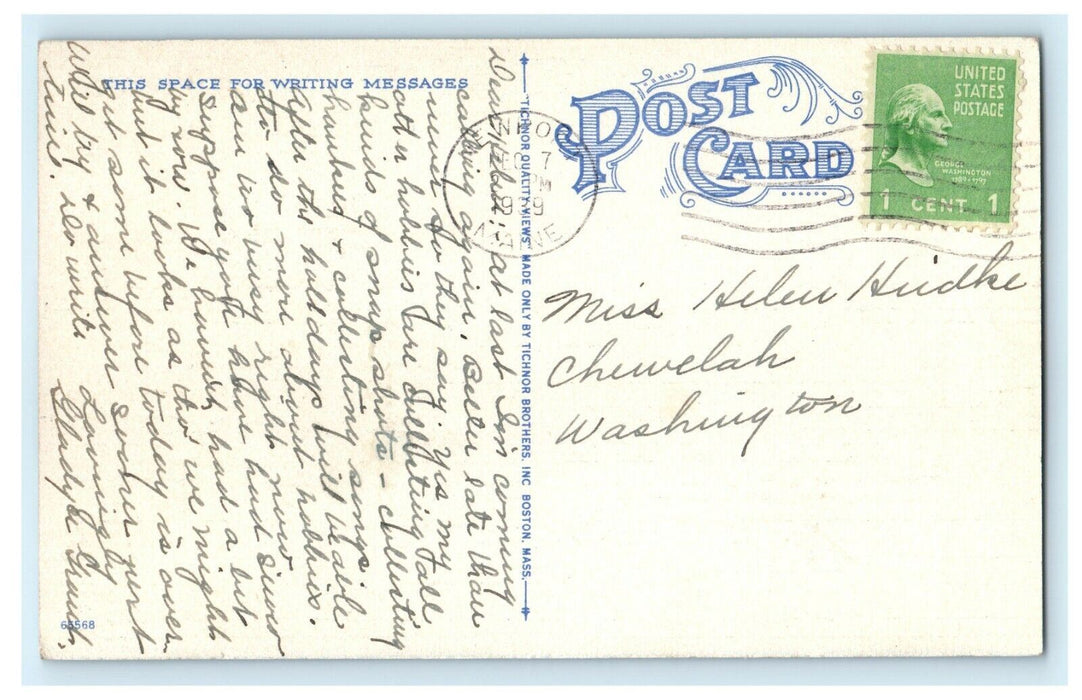 THIS SPACE FOR WRITING MESSAGES
Dear Helen, at last I'm coming
calling again. Better late than
never so they say. Yes my
other hobbies are Collecting all
kinds of snap shots - Collecting
hankies & collecting songs.
After the holidays will be able
to do more about hobbies.
Am so busy right now
Suppose you have had Snow
by now. We haven't had a bit
but it looks as tho we might
get some before today is over.
Will try & answer sooner next
time. Do write
Lovingly
Gladys
TICHNOR QUALITY VIEWS, MADE ONLY BY TICHNOR BROTHERS, INC BOSTON, MASS.
65568
POST CARD
DEC 7
PM
MAINE
UNITED
STATES
POSTAGE
GEORGE
WASHINGTON
1789-1797
1 CENT 1
Miss Helen Hudke
Chewelah
Washington